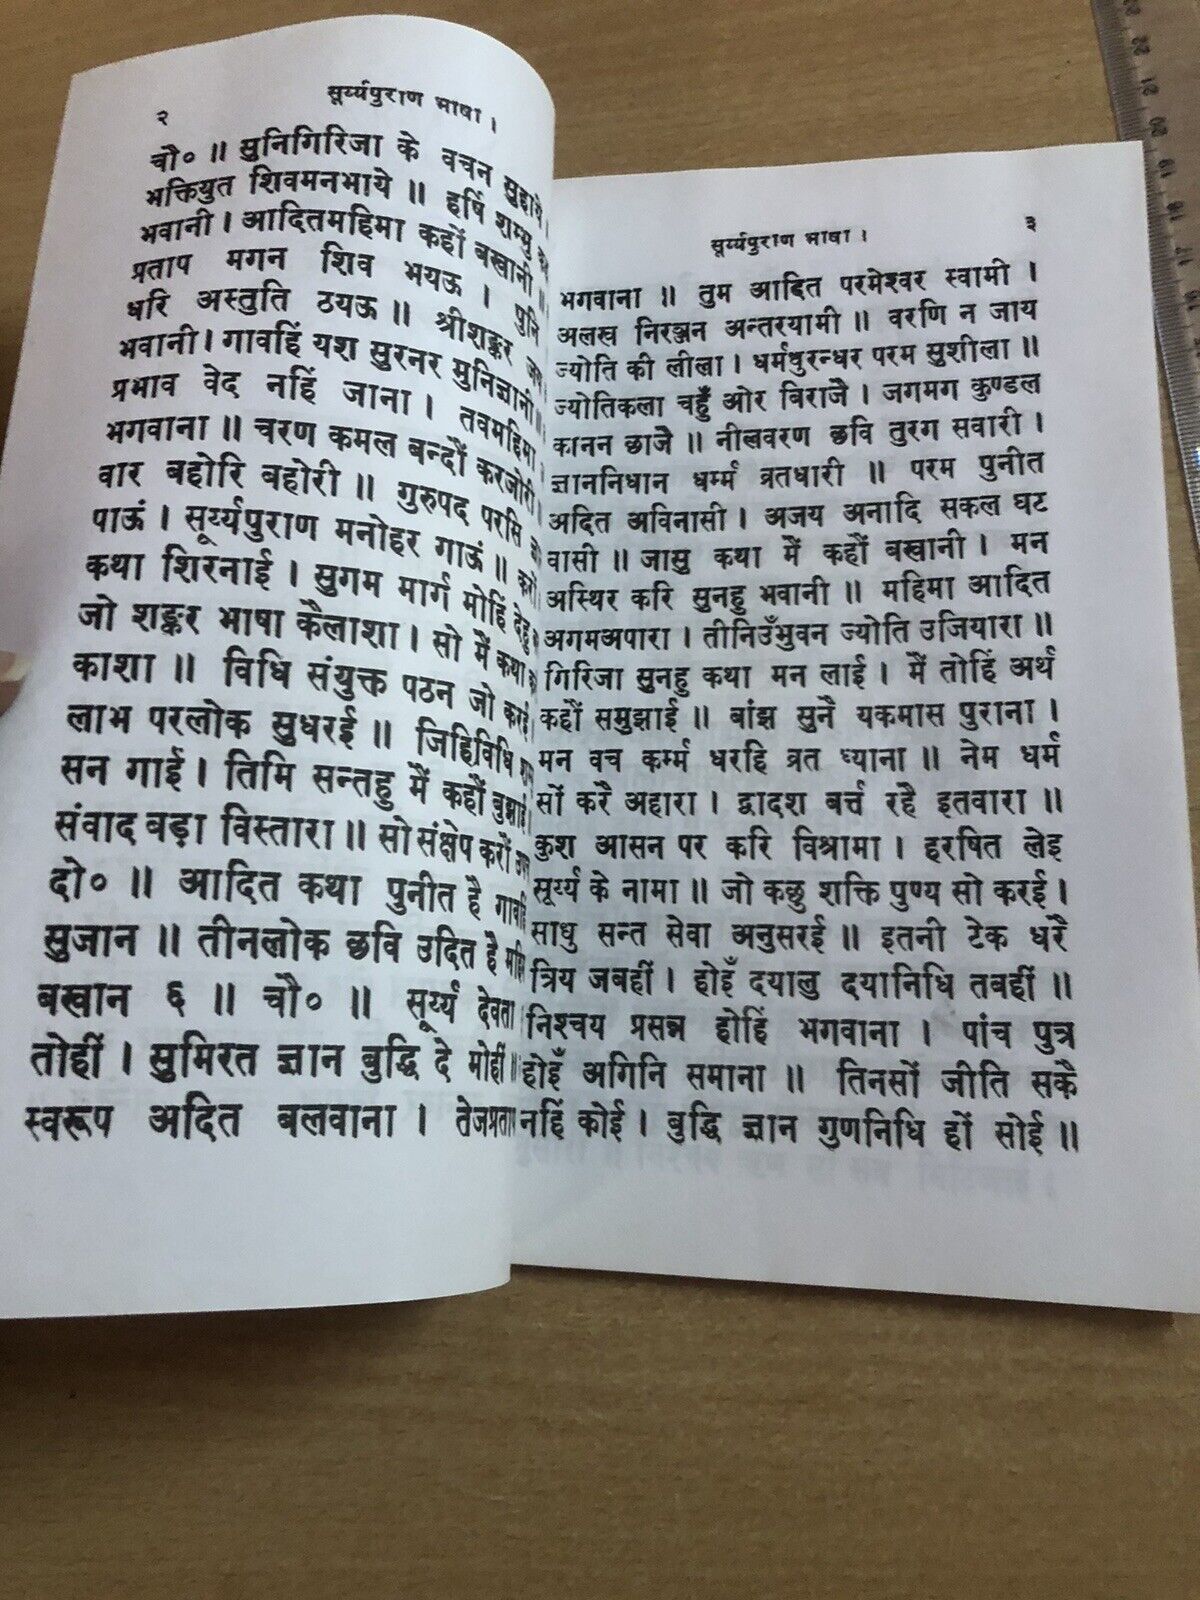 २
सूर्य्यपुराण भाषा ।
चौ० ॥ सुनिगिरिजा के वचन सुहाये।
भक्तियुत शिवमनभाये ॥ हर्षि शम्भु
भवानी । आदितमहिमा कहों बखानी ॥
प्रताप मगन शिव भयऊ । पुनि
धरि अस्तुति ठयऊ ॥ श्रीशङ्कर
भवानी। गावहिं यश सुरनर मुनिज्ञानी॥
प्रभाव वेद नहिं जाना । तवमहिमा
भगवाना ॥ चरण कमल बन्दौं करजोरी।
वार बहोरि बहोरी ॥ गुरुपद परसि
पाऊं । सूर्य्यपुराण मनोहर गाऊं ॥
कथा शिरनाई । सुगम मार्ग मोहिं देहु
जो शङ्कर भाषा कैलाशा । सो मैं कथा
काशा ॥ विधि संयुक्त पठन जो करई।
लाभ परलोक सुधरई ॥ जिहिविधि
सन गाई । तिमि सन्तहु मैं कहौं बुझाई।
संवाद बड़ा विस्तारा ॥ सो संक्षेप करौं
दो० ॥ आदित कथा पुनीत है गावहिं
सुजान ॥ तीनलोक छवि उदित है
बखान ६ ॥ चौ० ॥ सूर्य्य देवता
तोहीं । सुमिरत ज्ञान बुद्धि दे मोहीं ॥
स्वरूप अदित बलवाना । तेजप्रताप
सूर्य्यपुराण भाषा ।
३
भगवाना ॥ तुम आदित परमेश्वर स्वामी ।
अलख निरञ्जन अन्तरयामी ॥ वरणि न जाय
ज्योति की लीला । धर्मधुरन्धर परम सुशीला ॥
ज्योतिकला चहुँ ओर बिराजै । जगमग कुण्डल
कानन छाजै ॥ नीलवरण छवि तुरग सवारी ।
ज्ञाननिधान धर्म्म व्रतधारी ॥ परम पुनीत
अदित अविनासी । अजय अनादि सकल घट
वासी ॥ जासु कथा मैं कहौं बखानी । मन
अस्थिर करि सुनहु भवानी ॥ महिमा आदित
अगमअपारा । तीनिउँभुवन ज्योति उजियारा ॥
गिरिजा सुनहु कथा मन लाई । मैं तोहिं अर्थ
कहौं समुझाई ॥ बांझ सुनै यकमास पुराना ।
मन वच कर्म्म धरहि व्रत ध्याना ॥ नेम धर्म
सों करै अहारा । द्वादश बर्त्त रहै इतवारा ॥
कुश आसन पर करि विश्रामा । हरषित लेइ
सूर्य्य के नामा ॥ जो कछु शक्ति पुण्य सो करई ।
साधु सन्त सेवा अनुसरई ॥ इतनी टेक धरै
त्रिय जबहीं । होइँ दयालु दयानिधि तबहीं ॥
निश्चय प्रसन्न होहिं भगवाना । पांच पुत्र
होइँ अगिनि समाना ॥ तिनसों जीति सकै
नहिं कोई । बुद्धि ज्ञान गुणनिधि हों सोई ॥